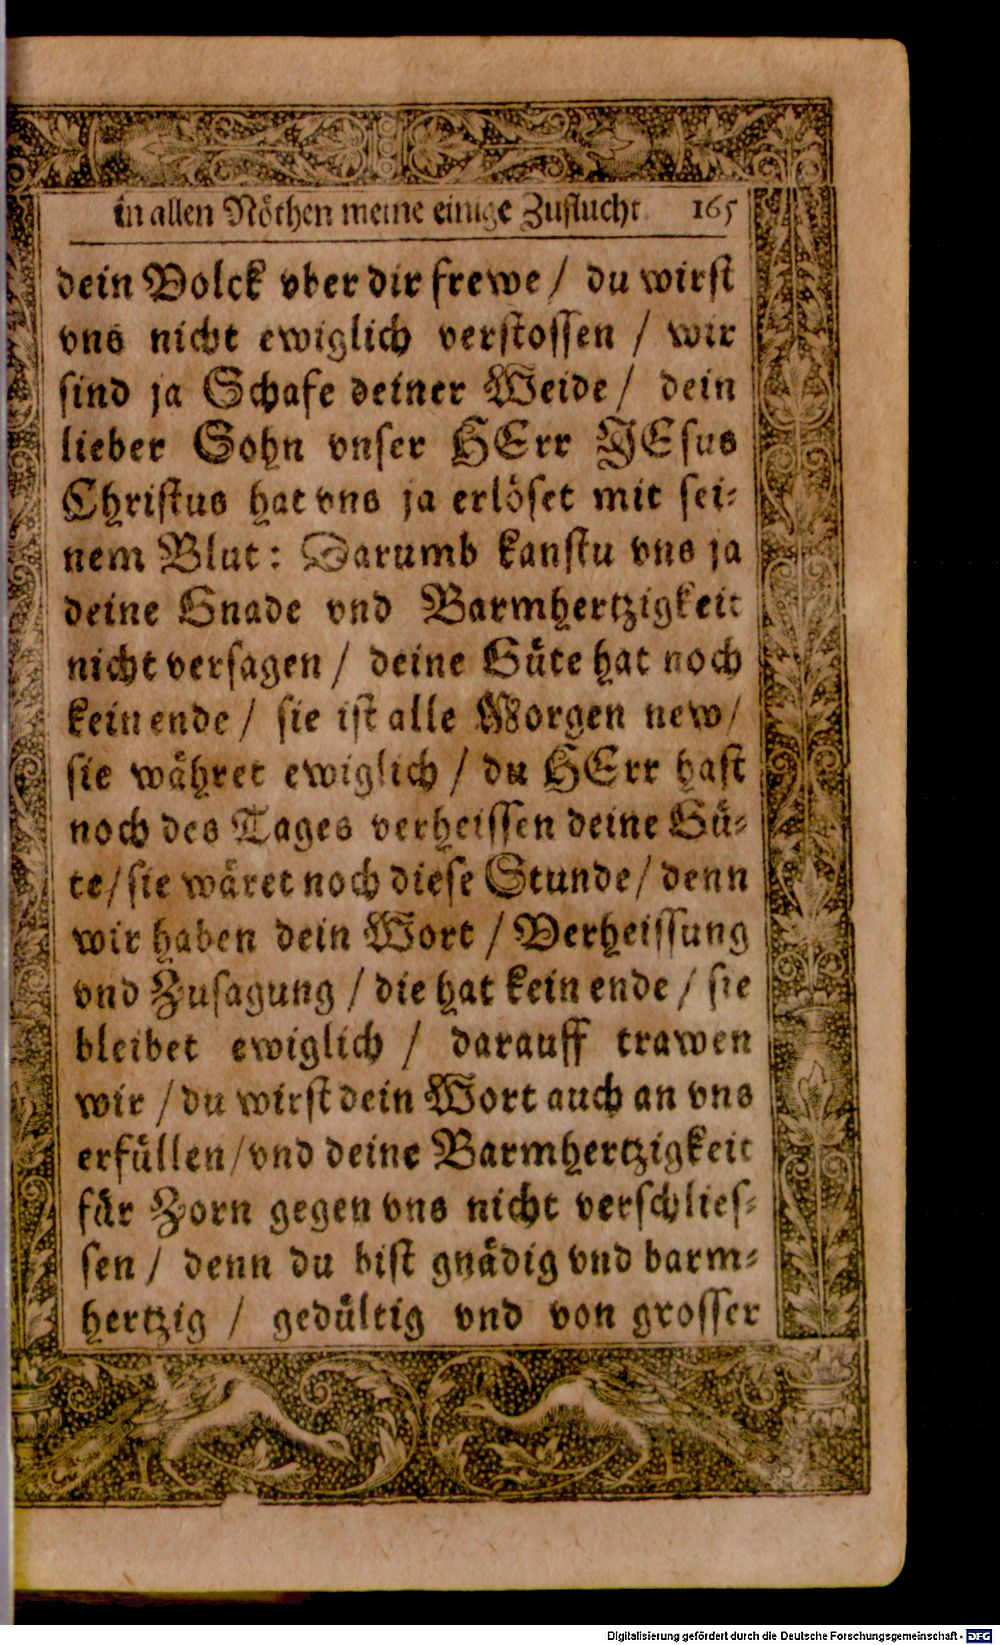 in allen Nöthen meine einige Zuflucht. 165
dein Volck vber dir frewe / du wirst
vns nicht ewiglich verstossen / wir
sind ja Schafe deiner Weide / dein
lieber Sohn vnser HErr JEsus
Christus hat vns ja erlöset mit sei-
nem Blut: Darumb kanstu vns ja
deine Gnade vnd Barmhertzigkeit
nicht versagen / deine Güte hat noch
kein ende / sie ist alle Morgen new /
sie währet ewiglich / du HErr hast
noch des Tages verheissen deine Gü-
te / sie wäret noch diese Stunde / denn
wir haben dein Wort / Verheissung
vnd Zusagung / die hat kein ende / sie
bleibet ewiglich / darauff trawen
wir / du wirst dein Wort auch an vns
erfüllen / vnd deine Barmhertzigkeit
für Zorn gegen vns nicht verschlies-
sen / denn du bist gnädig vnd barm-
hertzig / gedültig vnd von grosser
Digitalisierung gefördert durch die Deutsche Forschungsgemeinschaft - DFG